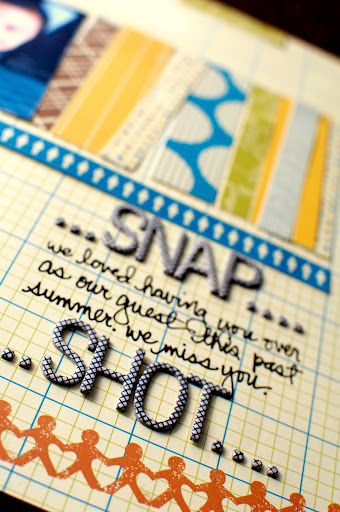 ...SNAP....
we loved having you over
as our guest this past
summer. we miss you.
..SHOT....